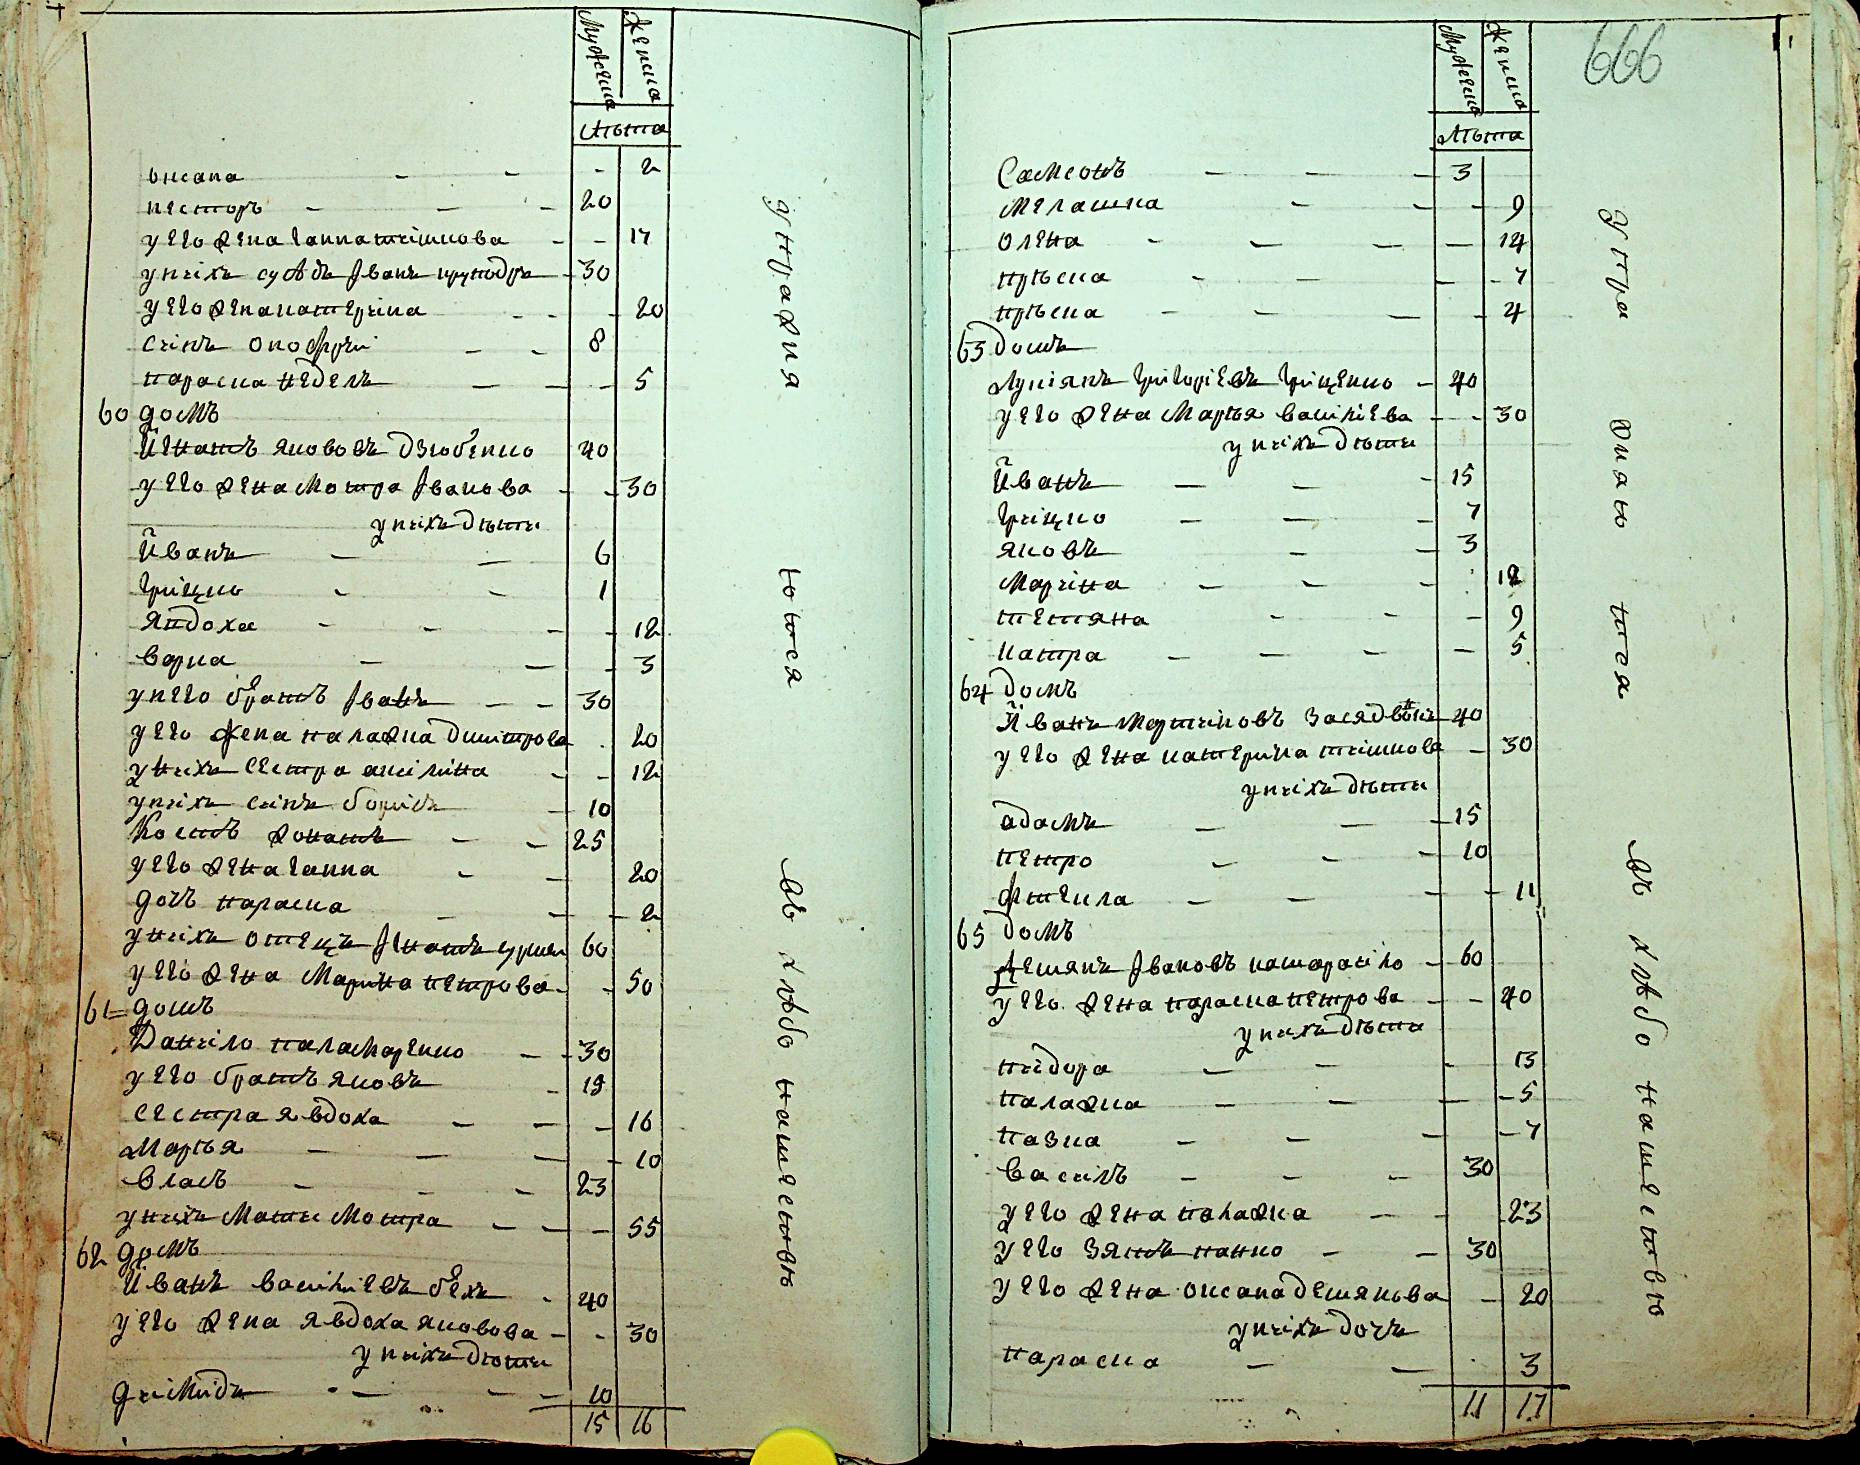 Мужеска Женска
Лѣта
оксана - - - 2
несторъ - - - 20
у его жена ганна тишкова - - 17
у нихъ сусѣдъ Іванъ круподря - 30
у его жена катерина - - - 20
синъ онофрѣи - - 8
параска неделъ - - - 5
60 домъ
Игнатъ якововъ дзюбенко 40
у его жена мотра Іванова - - 30
у нихъ дѣти
Иванъ - - 6
грицко - - 1
явдоха - - - - 12
варка - - - 3
у него братъ Іванъ - - 30
у его жена палажка димитрова - 20
у нихъ сестра акилина - - 12
у нихъ синъ борисъ - 10
Костъ - - 25
у его жена ганна - - 20
дочъ параска - - - 2
у нихъ отецъ Ігнатъ 60
у его жена Марина петрова - - 50
61 домъ
Данило паламаренко - - 30
у его братъ яковъ - 19
сестра явдоха - - - 16
Маръя - - - - 10
власъ - - - 23
у нихъ Мати Мотра - - - 55
62 домъ
Иванъ васильевъ бехъ - 40
у его жена явдоха яковова - - 30
у нихъ дѣти
димидъ - - - 10
15 16
у параѳия
ютъся
въ хлѣбо пашествѣ
666
Мужеска Женска
Лѣта
Самсонъ - - - 3
мелашка - - - 9
олена - - - - 14
прѣска - - - - 7
прѣска - - - - 4
63 домъ
Лукіянъ григоріевъ гриценко - 40
у его жена Маръя василіева - - 30
у нихъ дѣти
Иванъ - - - 15
грицко - - - 7
яковъ - - 3
Марина - - - 12
тетяна - - - 9
катра - - - - - 5
64 домъ
Иванъ мартиновъ 40
у его жена катерина тишкова - 30
у нихъ дѣти
адамъ - - - 15
петро - - - 10
- - - - 11
65 домъ
Демянъ Івановъ - 60
у его жена параска петрова - - 40
у нихъ дѣти
пидора - - - 13
палажка - - - - 5
пазка - - - - 7
василъ - - - 30
у его жена палажка - - 23
у его зятъ панко - - 30
у его жена оксана демянова - 20
у нихъ дочъ
параска - - - 3
11 17
въ хлѣбо пашествѣ